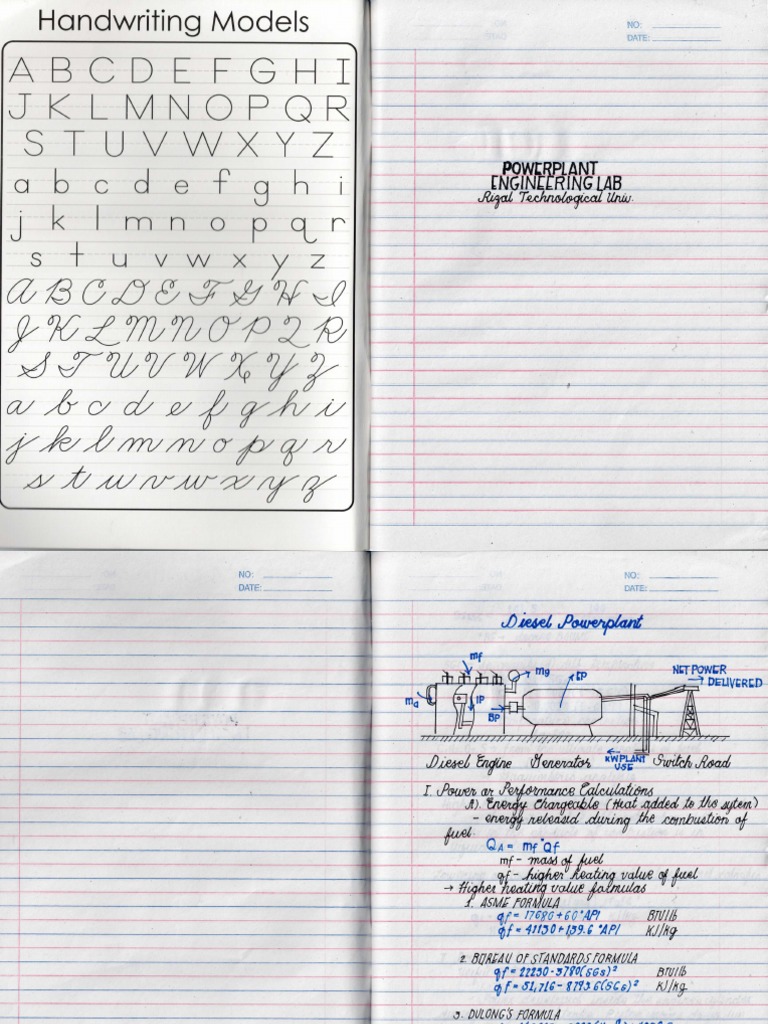 Handwriting Models
A B C D E F G H I
J K L M N O P Q R
S T U V W X Y Z
a b c d e f g h i
j k l m n o p q r
s t u v w x y z
A B C D E F G H I
J K L M N O P Q R
S T U V W X Y Z
a b c d e f g h i
j k l m n o p q r
s t u v w x y z
NO:
DATE:
POWERPLANT
ENGINEERING LAB
Rizal Technological Univ.
NO:
DATE:
NO:
DATE:
Diesel Powerplant
mf
mg
EP
NET POWER
DELIVERED
ma
IP
BP
KW PLANT
USE
Diesel Engine Generator Switch Road
I. Power or Performance Calculations
A). Energy Chargeable (Heat added to the sytem)
- energy released during the combustion of
fuel.
QA = mf * Qf
mf - mass of fuel
qf - higher heating value of fuel
→ Higher heating value formulas
1. ASME FORMULA
qf = 17680 + 60 °API BTU/lb
qf = 41130 + 139.6 °API KJ/kg
2. BUREAU OF STANDARDS FORMULA
qf = 22230 - 3780(SGs)² BTU/lb
qf = 51,716 - 8793.6(SGs)² KJ/kg
3. DULONG'S FORMULA